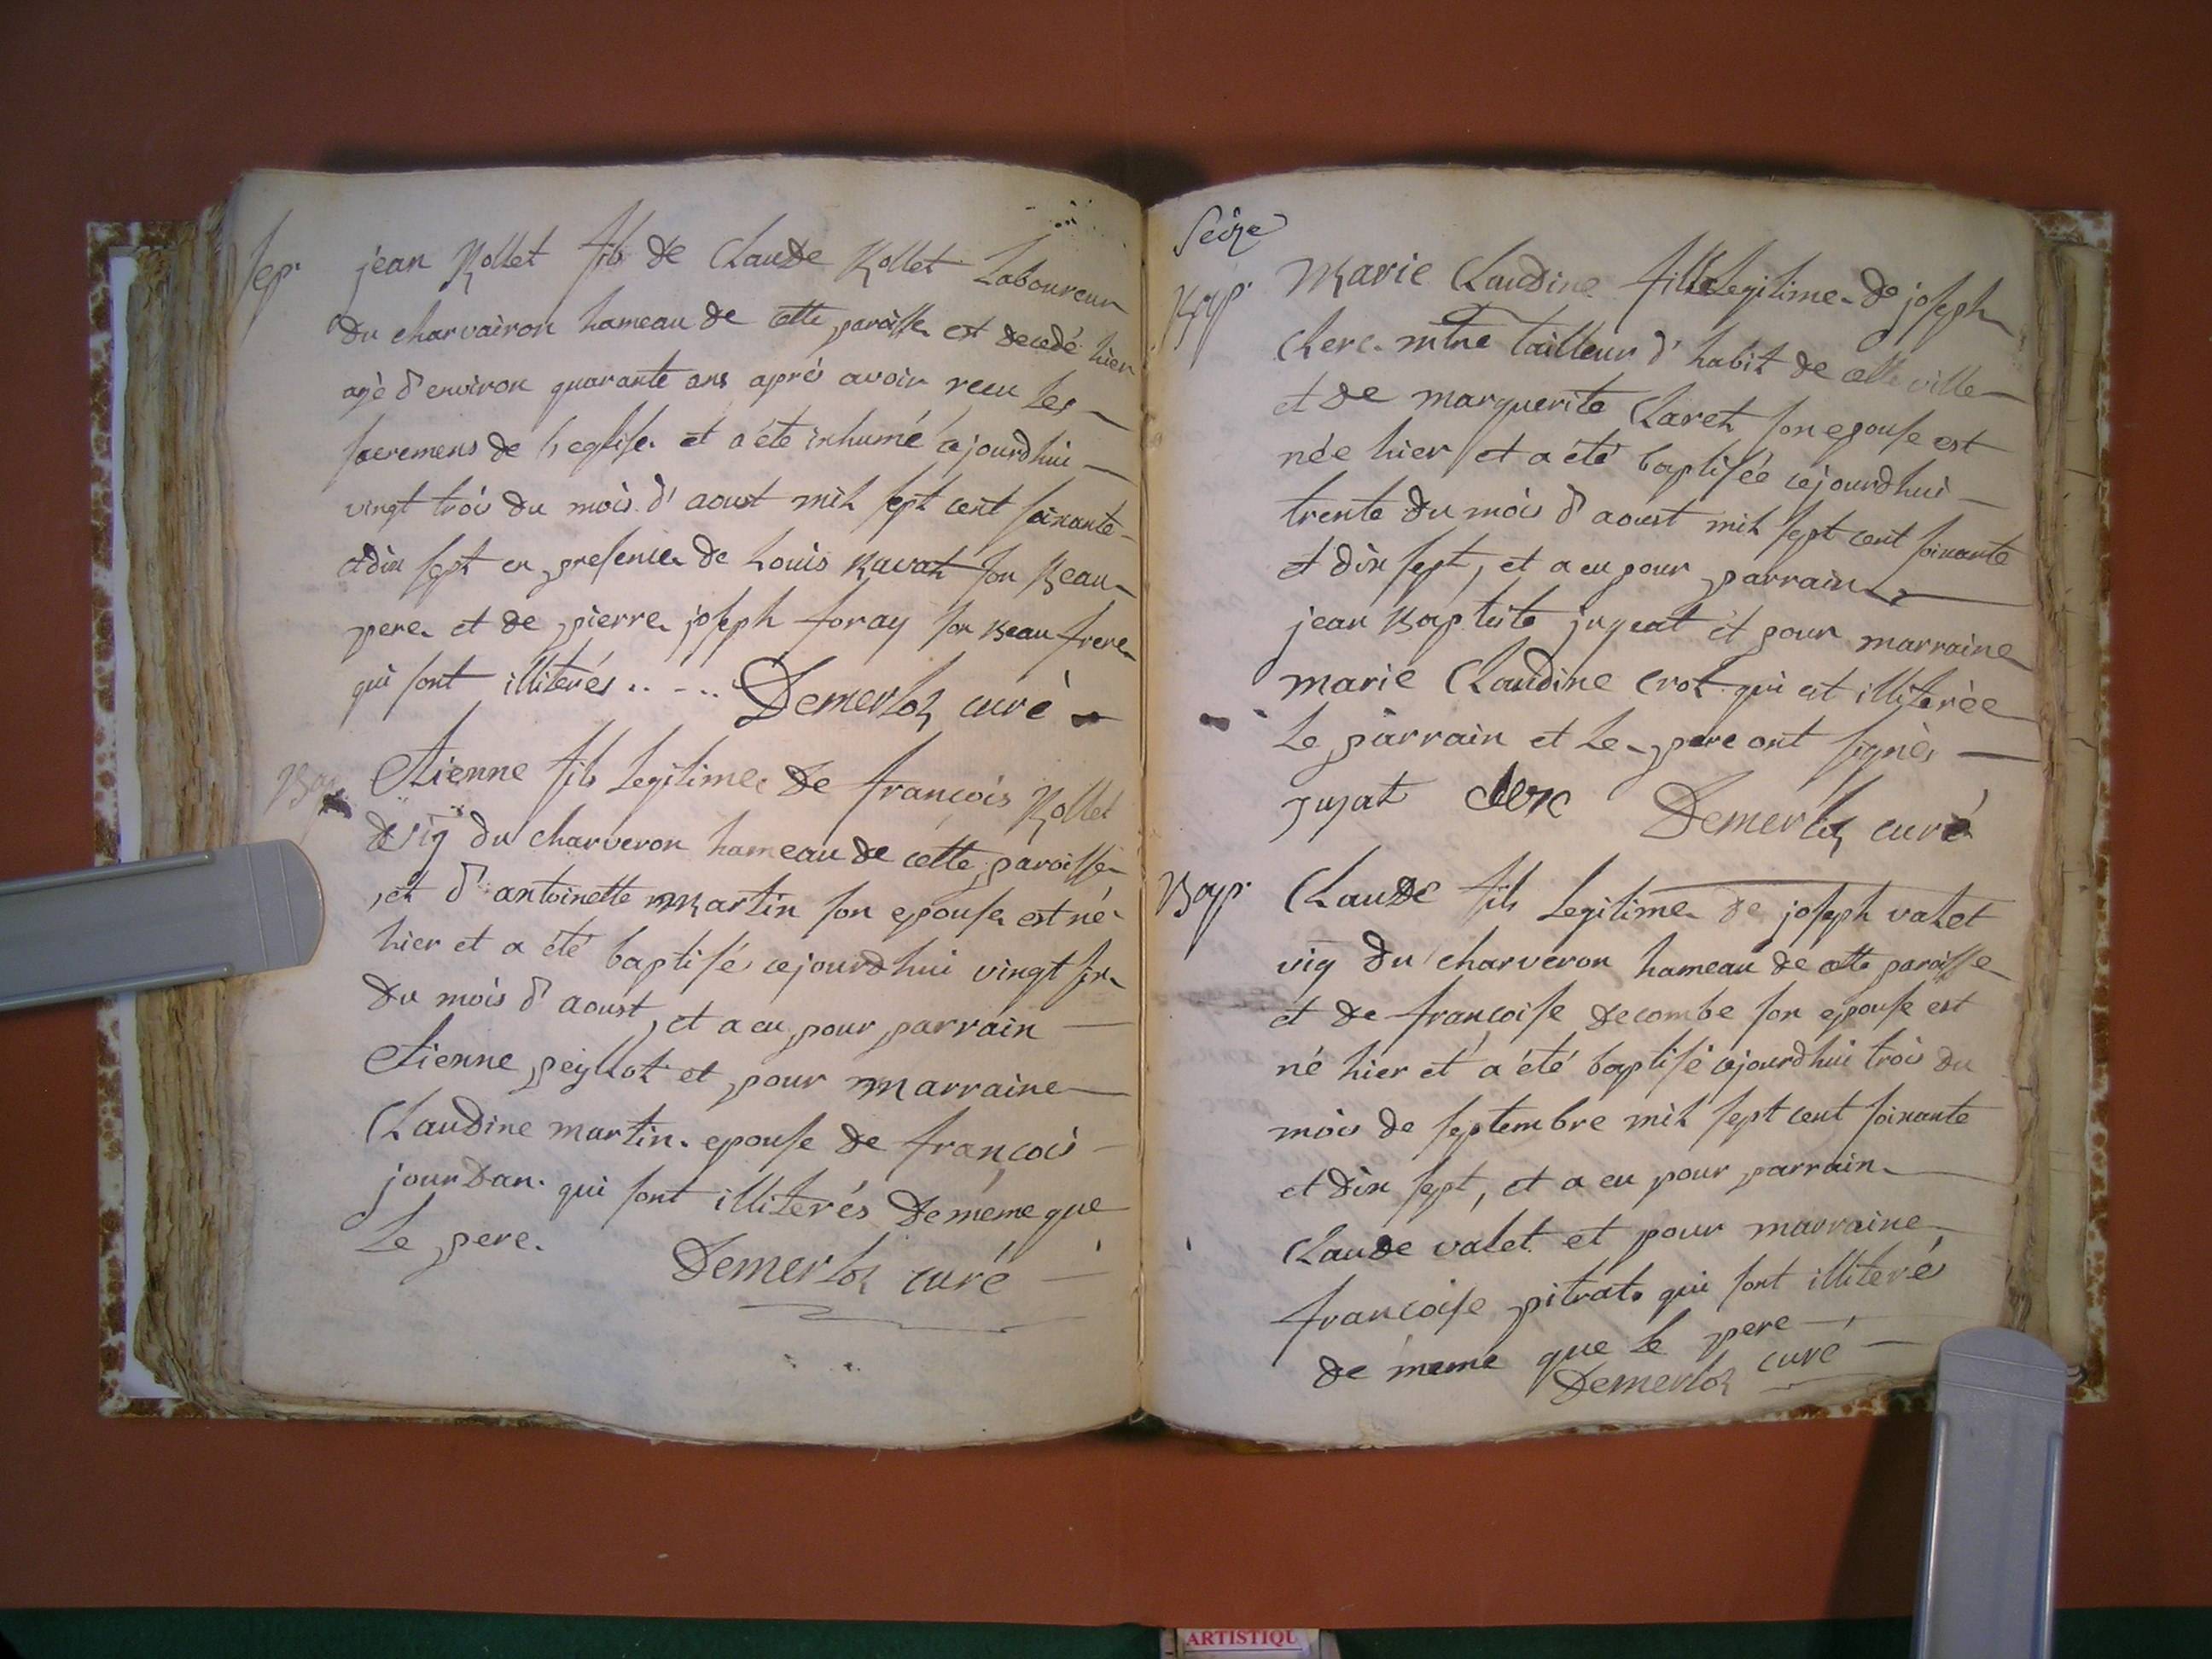 sep.
jean Rollet fils de Claude Rollet Laboureur
du charvairon hameau de cette paroisse est decedé hier
agé d'environ quarante ans aprés avoir recu les
sacremens de l'eglise et a été inhumé cejourdhui
vingt trois du mois d'aoust mil sept cent soixante
et dix sept en presence de Louis Ravat son Beau
pere et de pierre joseph foray son Beau frere
qui sont illiterés ..-.. Demerloz curé
Bap
Etienne fils Legitime de françois Rollet
vig du charveron hameau de cette paroisse
et d'antoinette Martin son epouse est né
hier et a été baptisé cejourdhui vingt six
du mois d'aoust, et a eu pour parrain
Etienne peyllot et pour marraine
Claudine martin epouse de françois
jourdan qui sont illiterés de même que
Le pere.
Demerloz curé
Seize
Bap.
Marie Claudine fille Legitime de joseph
Clerc mtre tailleur d'habit de cette ville
et de marguerite Claret son epouse est
née hier et a été baptisée cejourdhui
trente du mois d'aoust mil sept cent soixante
et dix sept, et a eu pour parrain
jean Baptiste jugeat et pour marraine
marie Claudine Crot qui est illiterée
Le parrain et Le pere ont signés
jujat clerc Demerloz curé
Bap.
Claude fils Legitime de joseph valet
vig du charveron hameau de cette paroisse
et de francoise decombe son epouse est
né hier et a été baptisé cejourdhui trois du
mois de septembre mil sept cent soixante
et dix sept, et a eu pour parrain
Claude valet et pour marraine
francoise pitrat qui sont illiterés
de meme que le pere
Demerloz curé
ARTISTIQU